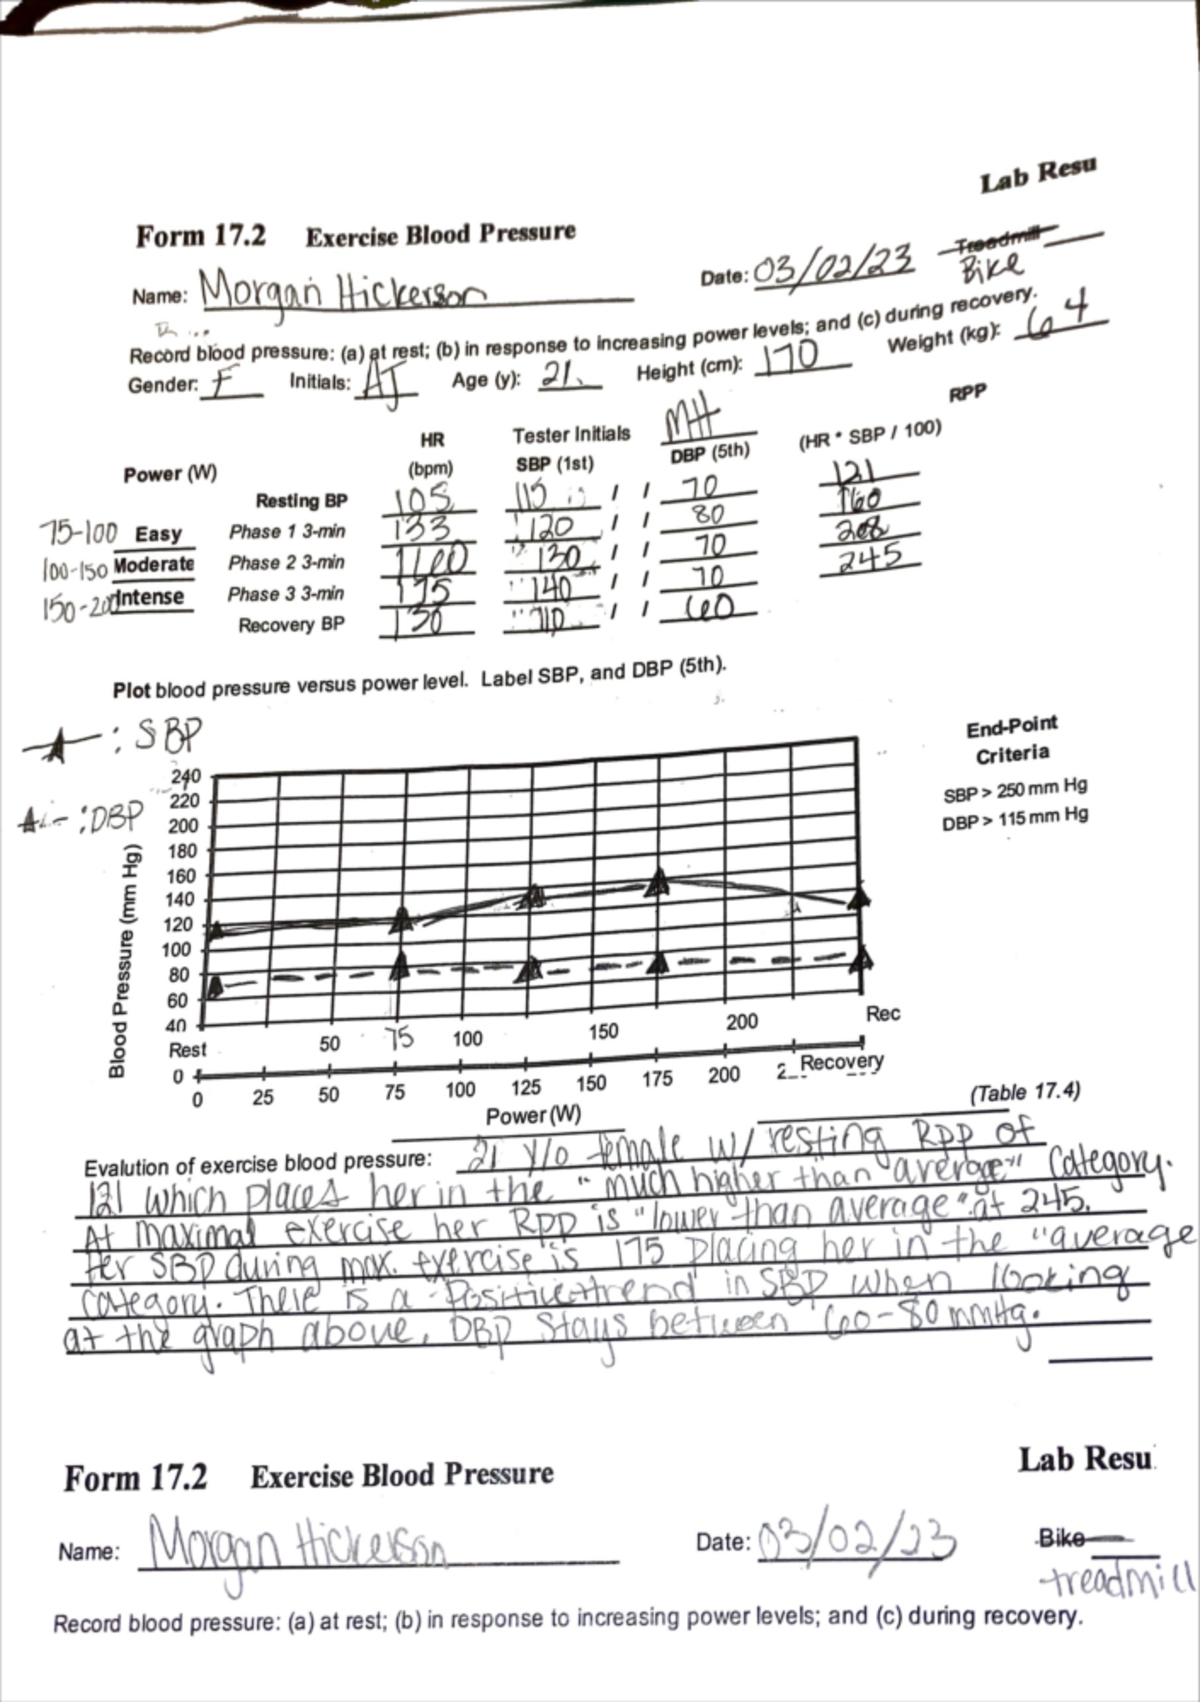 Lab Resu
Form 17.2 Exercise Blood Pressure
Treadmill
Name: Morgan Hickerson Date: 03/02/23 Bike
Record blood pressure: (a) at rest; (b) in response to increasing power levels; and (c) during recovery.
Gender: F Initials: AJ Age (y): 21. Height (cm): 170 Weight (kg): 64
RPP
HR Tester Initials MH (HR * SBP / 100)
Power (W) (bpm) SBP (1st) DBP (5th)
Resting BP 105 115 / / 70 121
75-100 Easy Phase 1 3-min 133 120 / / 80 160
100-150 Moderate Phase 2 3-min 160 130 / / 70 208
150-200 Intense Phase 3 3-min 175 140 / / 70 245
Recovery BP 130 110 / / 60
Plot blood pressure versus power level. Label SBP, and DBP (5th).
: SBP
: DBP
End-Point
Criteria
SBP > 250 mm Hg
DBP > 115 mm Hg
Blood Pressure (mm Hg)
240
220
200
180
160
140
120
100
80
60
40
Rest 50 75 100 150 200 Rec
0
0 25 50 75 100 125 150 175 200 2 Recovery
Power (W)
(Table 17.4)
Evalution of exercise blood pressure: 21 y/o female w/ resting RPP of
121 which places her in the "much higher than average" category.
At maximal exercise her RPP is "lower than average" at 245.
Her SBP during max. exercise is 175 placing her in the "average
category. There is a positive trend in SBP when looking
at the graph above, DBP stays between 60-80 mmHg.
Lab Resu
Form 17.2 Exercise Blood Pressure
Name: Morgan Hickerson Date: 03/02/23 Bike
treadmill
Record blood pressure: (a) at rest; (b) in response to increasing power levels; and (c) during recovery.